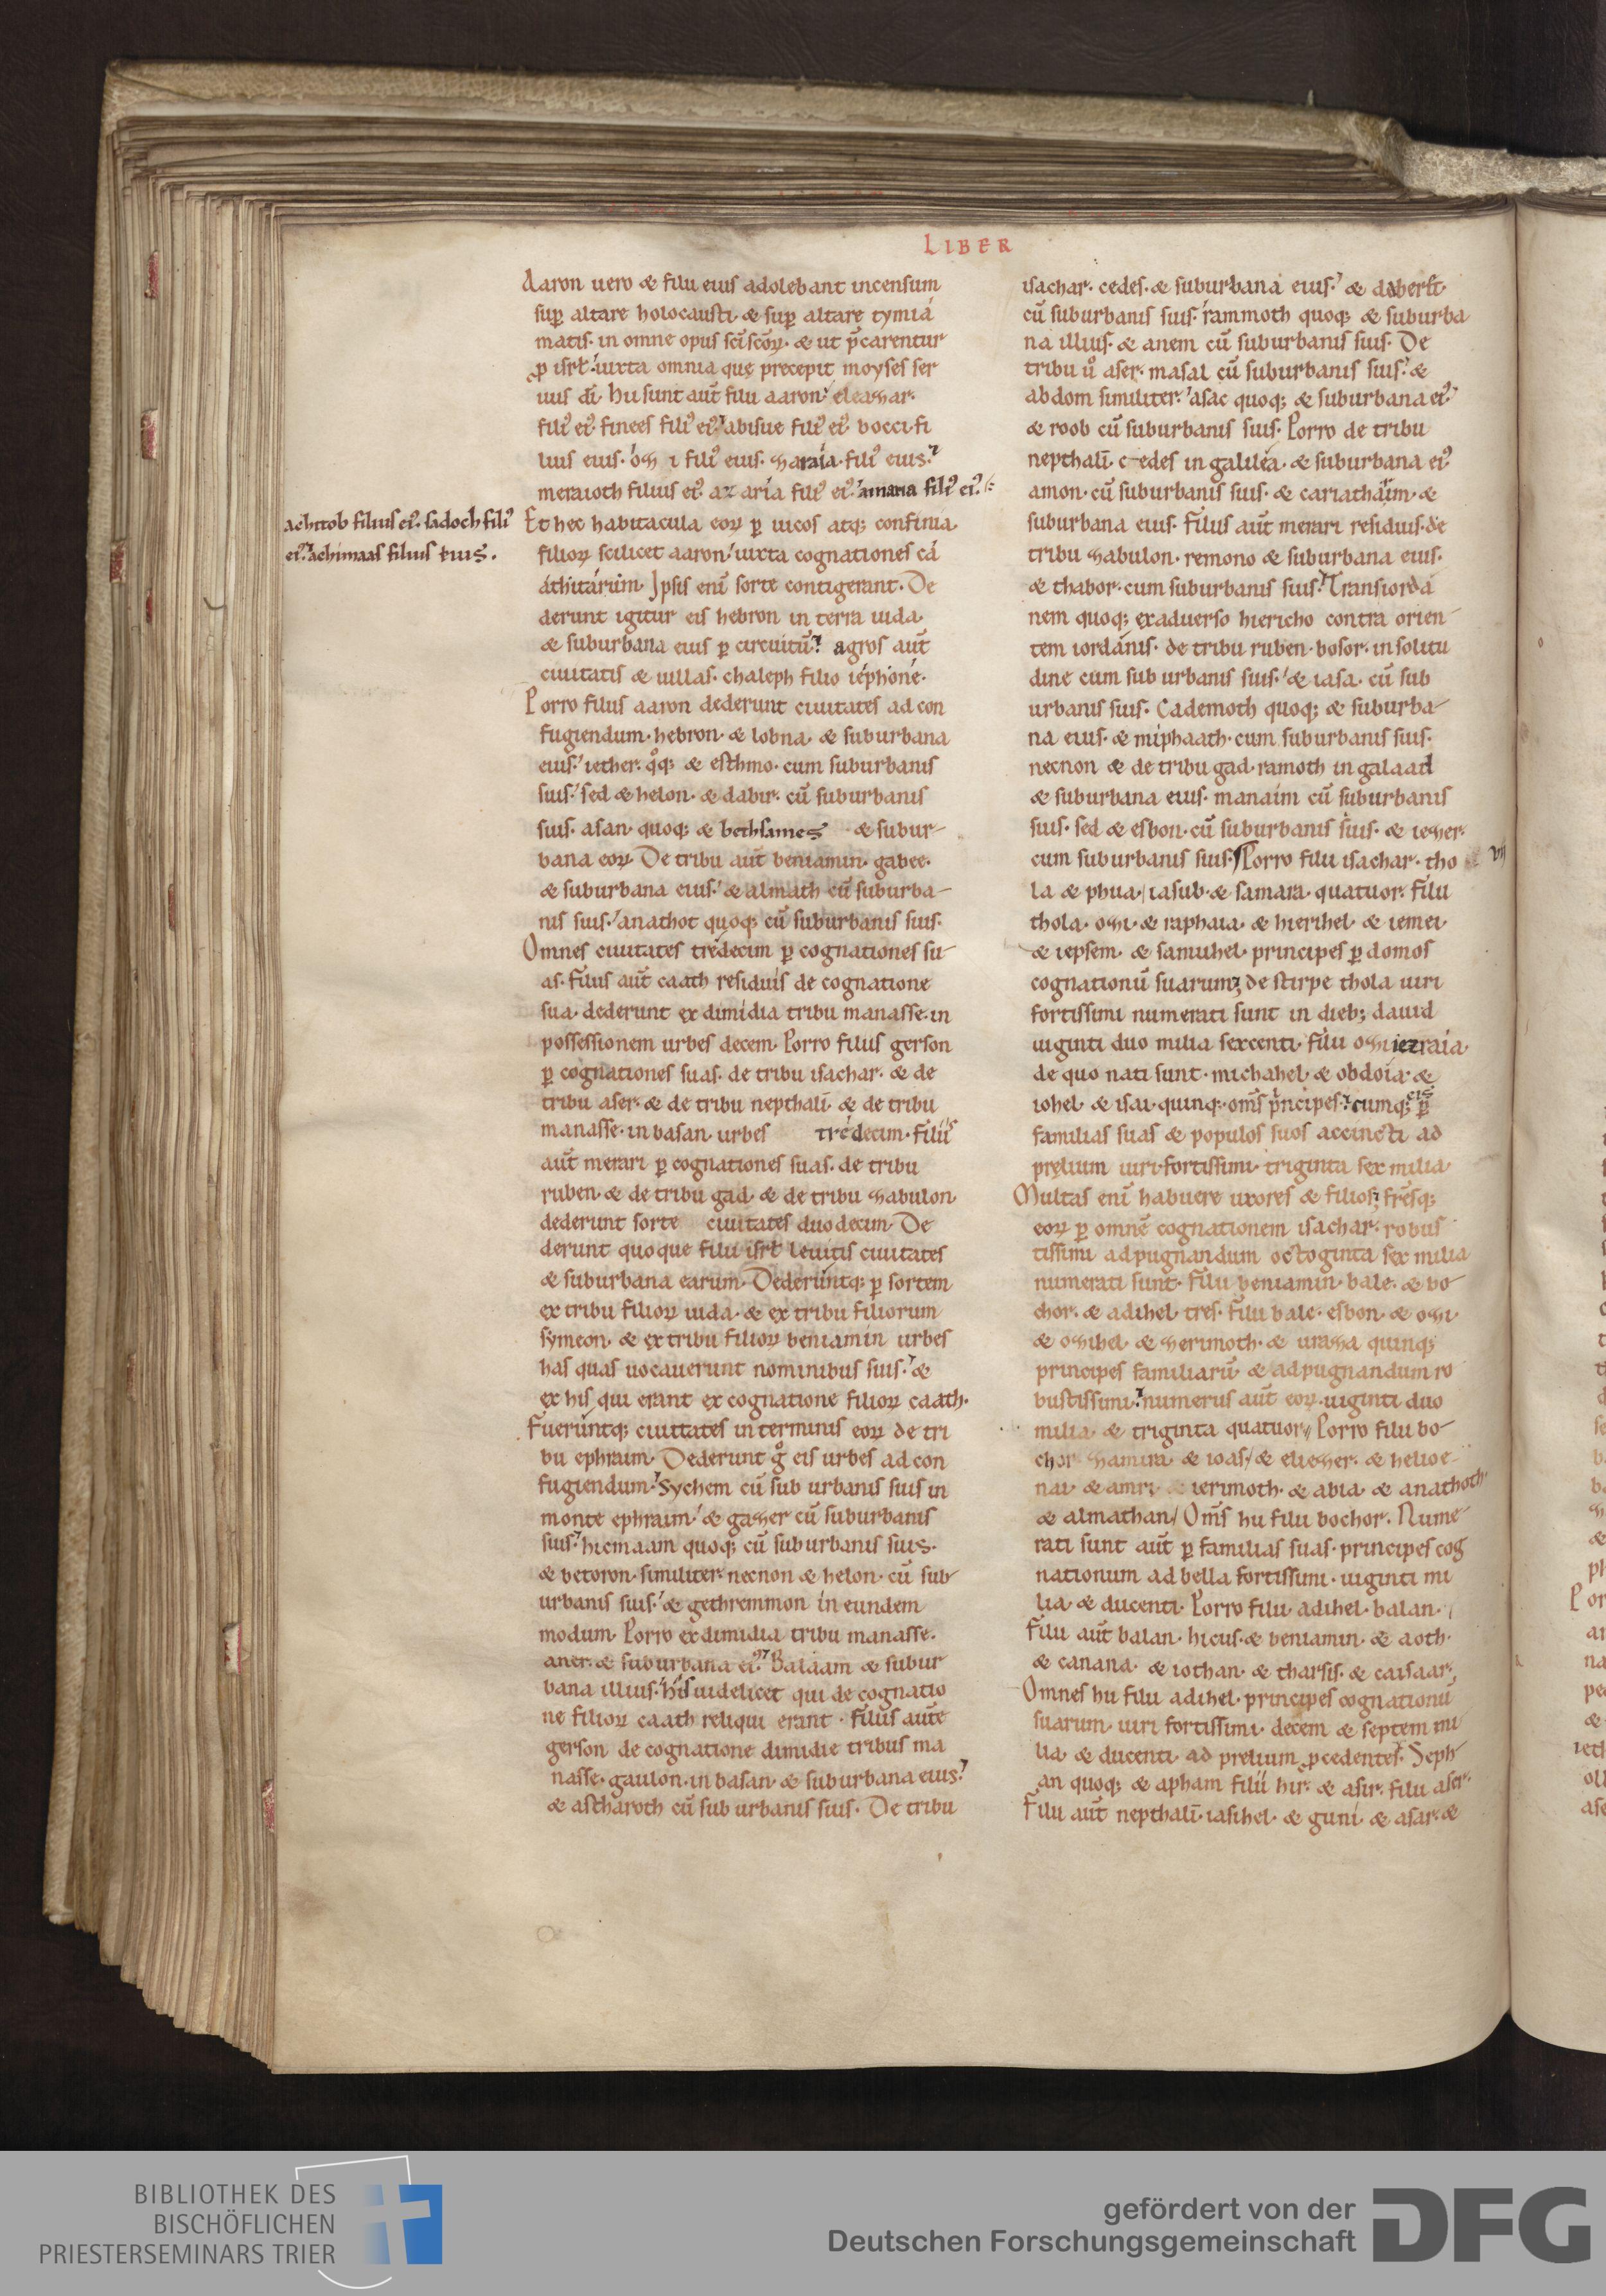 LIBER
Aaron uero & filii eius adolebant incensum
sup altare holocausti· & sup altare tymiá
matis· in omne opus sci scoꝝ· & ut p̄carentur
ꝓ isrl· iuxta omnia que precepit moyses ser
uus di· Hii sunt aut filii aaron· eleazar·
fili ei· finees fili ei· abisue fili ei· bocci· fi
lius eius· ozi fili eius· zaraia· fili eius·
meraioth filius ei· azaria fili ei· amaria fili ei·
achitob filius ei· sadoch fili
ei· achimaas filius eius.
Et hec habitacula eoꝝ p uicos atq; confinia
filioꝝ scilicet aaron· iuxta cognationes cá
áthitárum· Ipsis eni sorte contigerant· De
derunt igitur eis hebron in terra iuda·
& suburbana eius p circuitū· agros aut
ciuitatis & uillas· chaleph filio iéphóné·
Porro filiis aaron dederunt ciuitates ad con
fugiendum· hebron· & lobna· & suburbana
eius· iether· qq; & esthmo· cum suburbanis
suis· sed & helon· & dabir· cū suburbanis
suis· asan· quoq; & bethsames & subur-
bana eoꝝ· De tribu aut beniamin· gabee·
& suburbana eius· & almath cū suburba-
nis suis· anathot quoq; cū suburbanis suis·
Omnes ciuitates trédecim p cognationes su-
as· filiis aut caath residuis de cognatione
sua· dederunt ex dimidia tribu manasse· in
possessionem urbes decem· Porro filiis gerson
p cognationes suas· de tribu isachar· & de
tribu aser· & de tribu nepthalī· & de tribu
manasse· in basan· urbes trédecim· filiis
aut merari p cognationes suas· de tribu
ruben· & de tribu gad· & de tribu zabulon
dederunt sorte ciuitates duodecim· De
derunt quoque filii isrl leuitis ciuitates
& suburbana earum· Dederuntq; p sortem
ex tribu filioꝝ iuda· & ex tribu filiorum
symeon· & ex tribu filioꝝ beniamin urbes
has quas uocauerunt nominibus suis· &
ex his qui erant ex cognatione filioꝝ caath·
Fueruntq; ciuitates in terminis eoꝝ de tri
bu ephraim· Dederunt g eis urbes ad con
fugiendum· Sychem cū sub urbanis suis in
monte ephraim· & gazer cū suburbanis
suis· hicmaam quoq; cū suburbanis suis·
& betoron· similiter· necnon & helon· cū sub
urbanis suis· & gethremmon in eundem
modum· Porro ex dimidia tribu manasse·
aner· & suburbana ei· Balaam & subur
bana illius· his uidelicet qui de cognatio
ne filioꝝ caath reliqui erant· filiis aute
gerson de cognatione dimidie tribus ma
nasse· gaulon· in basan· & suburbana eius·
& astharoth cū sub urbanis suis· De tribu
isachar· cedes· & suburbana eius· &
cū suburbanis suis· rammoth quoq; & suburba
na illius· & anem cū suburbanis suis· De
tribu u aser· masal cū suburbanis suis· &
abdom similiter· asac quoq; & suburbana ei·
& roob cū suburbanis suis· Porro de tribu
nepthalī· cedes in galiléa· & suburbana ei·
amon· cū suburbanis suis· & cariathaim· &
suburbana eius· Filiis aut merari residuis· de
tribu zabulon· remono & suburbana eius·
& thabor· cum suburbanis suis· Transiordá
nem quoq; exaduerso hiericho contra orien-
tem iordánis· de tribu ruben· bosor· in solitu
dine cum sub urbanis suis· & iasa· cū sub
urbanis suis· Cademoth quoq; & suburba-
na eius· & miphaath· cum suburbanis suis·
necnon & de tribu gad· ramoth in galaad
& suburbana eius· manaim cū suburbanis
suis· sed & esbon· cū suburbanis suis· & iezer·
cum suburbanis suis· Porro filii isachar· tho
vii
la & phua· iasub· & samara· quatuor· Filii
thola· ozi· & raphaia· & hierihel· & iemei·
& iepsem· & samuhel· principes p domos
cognationū suarum; de stirpe thola uiri
fortissimi numerati sunt in dieb; dauid
uiginti duo milia sexcenti· Filii ozi iezraia·
de quo nati sunt· michahel· & obdoia· &
iohel· & isai· quinq; oms principes· cumq; eis p
familias suas & populos suos accincti ad
prelium uiri fortissimi· triginta sex milia·
Multas eni habuere uxores & filios; fresq;
eoꝝ p omne cognationem isachar· robus
tissimi ad pugnandum octoginta sex milia
numerati sunt· Filii beniamin· bale· & bo-
chor· & adihel· tres· Filii bale· esbon· & ozi
& ozihel· & zerimoth· & uraza quinq;
principes familiarū· & ad pugnandum ro
bustissimi· numerus aut eoꝝ· uiginti duo
milia· & triginta quatuor· Porro filii bo-
chor· zamira· & ioas· & eliezer· & helioe-
nai· & amri· & ierimoth· & abia· & anathoth·
& almathan· Oms hii filii bochor· Nume-
rati sunt aut p familias suas· principes cog
nationum ad bella fortissimi· uiginti mi
lia & ducenti· Porro filii adihel· balan·
Filii aut balan· hicus· & beniamin· & aoth·
& canana· & iothan· & tharsis· & caisaar·
Omnes hii filii adihel· principes cognationū
suarum· uiri fortissimi· decem & septem mi
lia· & ducenti· ad prelium ꝓcedentes· Seph-
an quoq; & apham filii hir· & asir· filii aser·
Filii aut nepthalī· iasihel· & guni· & asar· &
BIBLIOTHEK DES
BISCHÖFLICHEN
PRIESTERSEMINARS TRIER
gefördert von der
Deutschen Forschungsgemeinschaft
DFG